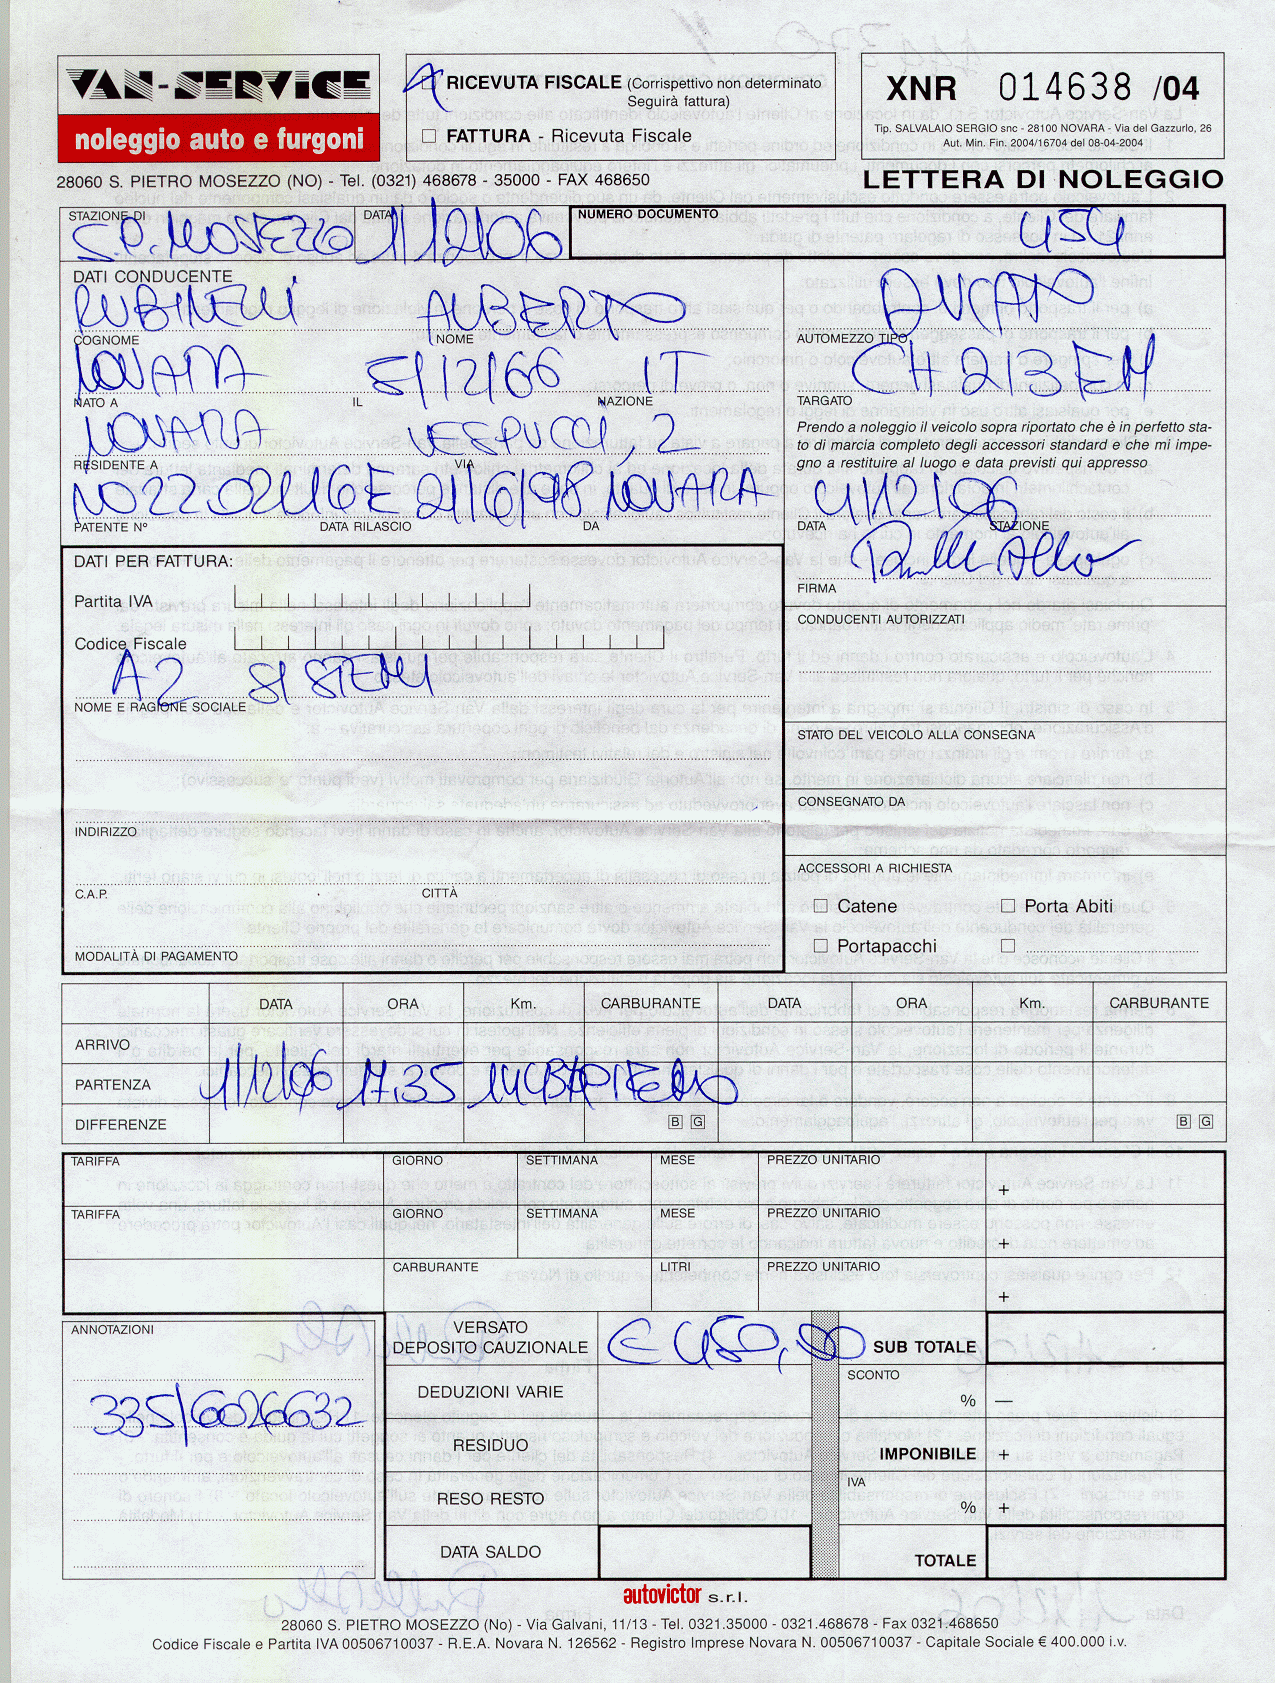 VAN-SERVICE
noleggio auto e furgoni
28060 S. PIETRO MOSEZZO (NO) - Tel. (0321) 468678 - 35000 - FAX 468650
RICEVUTA FISCALE (Corrispettivo non determinato
Seguirà fattura)
FATTURA - Ricevuta Fiscale
XNR 014638 /04
Tip. SALVALAIO SERGIO snc - 28100 NOVARA - Via del Gazzurlo, 26
Aut. Min. Fin. 2004/16704 del 08-04-2004
LETTERA DI NOLEGGIO
STAZIONE DI DATA NUMERO DOCUMENTO
S.P. MOSEZZO 1/12/06 454
DATI CONDUCENTE
ALBERTO DUCATO
COGNOME NOME AUTOMEZZO TIPO
NOVARA 5/12/66 IT CH213EM
NATO A IL NAZIONE TARGATO
NOVARA VESPUCCI, 2
RESIDENTE A VIA
Prendo a noleggio il veicolo sopra riportato che è in perfetto sta-
to di marcia completo degli accessori standard e che mi impe-
gno a restituire al luogo e data previsti qui appresso
NO2202416E 21/6/98 NOVARA 4/12/06
PATENTE Nº DATA RILASCIO DA DATA STAZIONE
FIRMA
DATI PER FATTURA:
Partita IVA
Codice Fiscale
A2 SISTEMI
NOME E RAGIONE SOCIALE
INDIRIZZO
C.A.P. CITTÀ
MODALITÀ DI PAGAMENTO
CONDUCENTI AUTORIZZATI
STATO DEL VEICOLO ALLA CONSEGNA
CONSEGNATO DA
ACCESSORI A RICHIESTA
Catene Porta Abiti
Portapacchi
DATA ORA Km. CARBURANTE DATA ORA Km. CARBURANTE
ARRIVO
PARTENZA 1/12/06 17.35 PIENO
DIFFERENZE B G B G
TARIFFA GIORNO SETTIMANA MESE PREZZO UNITARIO +
TARIFFA GIORNO SETTIMANA MESE PREZZO UNITARIO +
CARBURANTE LITRI PREZZO UNITARIO +
ANNOTAZIONI
335/6026632
VERSATO
DEPOSITO CAUZIONALE € 450,00 SUB TOTALE
DEDUZIONI VARIE SCONTO % —
RESIDUO IMPONIBILE +
RESO RESTO IVA % +
DATA SALDO TOTALE
autovictor s.r.l.
28060 S. PIETRO MOSEZZO (No) - Via Galvani, 11/13 - Tel. 0321.35000 - 0321.468678 - Fax 0321.468650
Codice Fiscale e Partita IVA 00506710037 - R.E.A. Novara N. 126562 - Registro Imprese Novara N. 00506710037 - Capitale Sociale € 400.000 i.v.